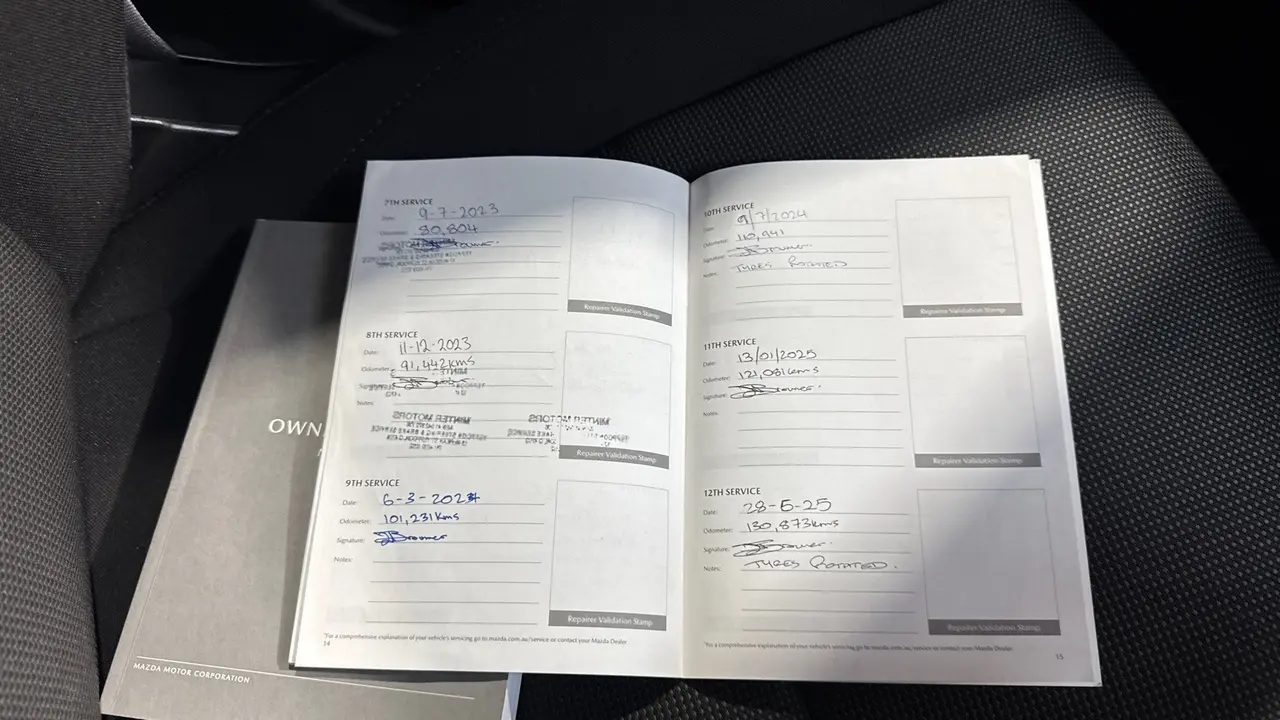 7TH SERVICE
Date: 9-7-2023
Odometer: 80,804
8TH SERVICE
Date: 11-12-2023
Odometer: 91,442kms
Notes:
WINTER MOTORS WINTER MOTORS
Repairer Validation Stamp
Repairer Validation Stamp
9TH SERVICE
Date: 6-3-2024
Odometer: 101,231kms
Signature: JBroomer
Notes:
Repairer Validation Stamp
*For a comprehensive explanation of your vehicle's servicing go to mazda.com.au/service or contact your Mazda Dealer
14
10TH SERVICE
Date: 9/7/2024
Odometer: 110,941
Signature:
Notes: TYRES ROTATED
Repairer Validation Stamp
11TH SERVICE
Date: 13/01/2025
Odometer: 121,081kms
Signature:
Notes:
Repairer Validation Stamp
12TH SERVICE
Date: 28-5-25
Odometer: 130,873kms
Signature:
Notes: TYRES ROTATED.
Repairer Validation Stamp
*For a comprehensive explanation of your vehicle's servicing go to mazda.com.au/service or contact your Mazda Dealer
15
OWN
MAZDA MOTOR CORPORATION